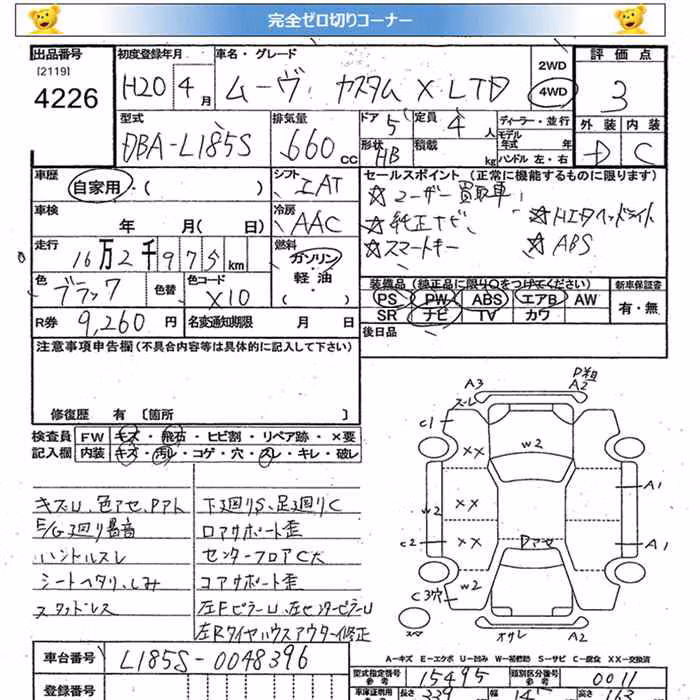 完全ゼロ切りコーナー
出品番号 初度登録年月 車名・グレード 2WD 評価点
[2119]
4226 H20 4月 ムーヴ カスタム X LTD 4WD 3
型式 排気量 ドア 5 定員 4人 ディーラー・並行 外装 内装
モデル年式 年
DBA-L185S 660cc 形状 HB 積載 kg ハンドル 左・右 D C
車歴 シフト セールスポイント(正常に機能するものに限ります)
自家用・( ) IAT ☆ユーザー買取車
車検 冷房 ☆純正ナビ
年 月( 日) AAC ☆スマートキー ☆ABS
走行 燃料
16万2千975km ガソリン・軽油
装備品(純正品に限り○をつけてください) 新車保証書
色 色替 色コード PS PW ABS エアB AW 有・無
ブラック X10 SR ナビ TV カワ
R券 9,260円 名変通知期限 月 日 後日品
注意事項申告欄(不具合内容等は具体的に記入して下さい)
修復歴 有 [箇所 ]
検査員 FW キズ・飛石・ヒビ割・リペア跡・×要
記入欄 内装 キズ・汚レ・コゲ・穴・スレ・キレ・破レ
キズU、色アセ、Pアト 下廻りS、足廻りC
E/G廻り異音 ロアサポート歪
ハンドルスレ センターフロアC大
シートヘタリ、しみ コアサポート歪
スタッドレス 左FピラーU、左センターピラーU
左Rタイヤハウスアウター修正
A3 P粗 A2
スレ
C1 W2
×× 
W2 ×× A1
C2 ×× Pアセ A1
C3穴 W2
オサレ A2
A-キズ E-エクボ U-凹み W-補修跡 S-サビ C-腐食 XX-交換済
車台番号 L185S-0048396 型式指定番号 参考 15495 類別区分番号 参考 0011
登録番号 長さ 339 幅 高さ